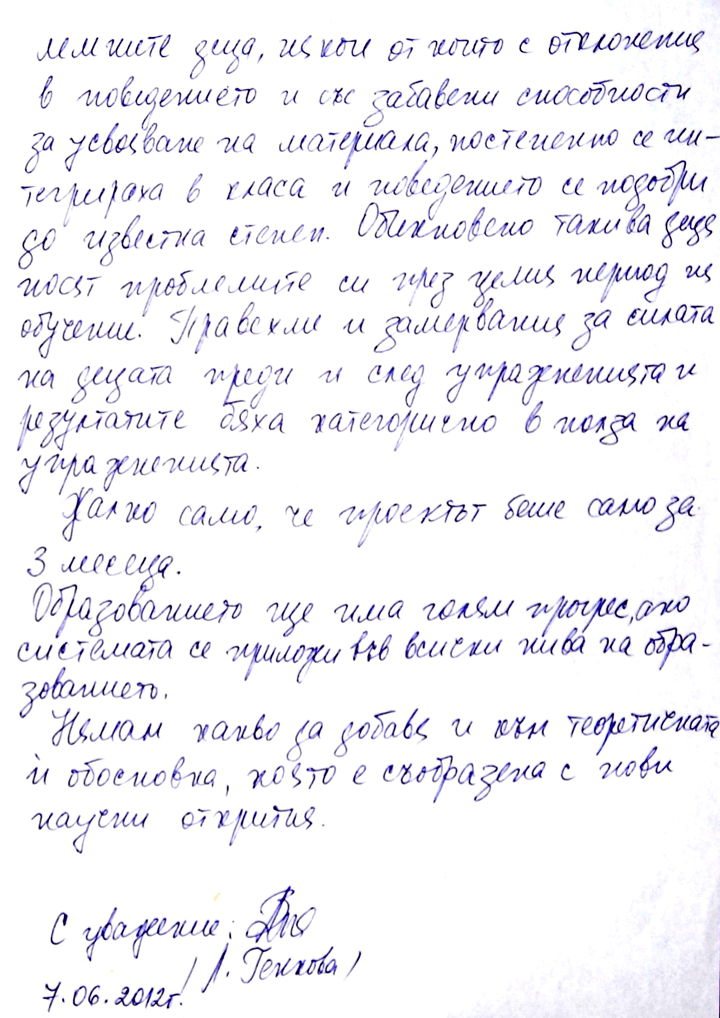 лемните деца, някои от които с отклонения
в поведението и със забавени способности
за усвояване на материала, постепенно се ин-
тегрираха в класа и поведението се подобри
до известна степен. Обикновено такива деца
носят проблемите си през целия период на
обучение. Правехме и замервания за силата
на децата преди и след упражненията и
резултатите бяха категорично в полза на
упражненията.
Жалко само, че проектът беше само за
3 месеца.
Образованието ще има голям прогрес, ако
системата се приложи във всички нива на обра-
зованието.
Нямам какво да добавя и към теоретичната
ѝ обосновка, която е съобразена с нови
научни открития.
С уважение:
/ Л. Генкова /
7.06.2012г.